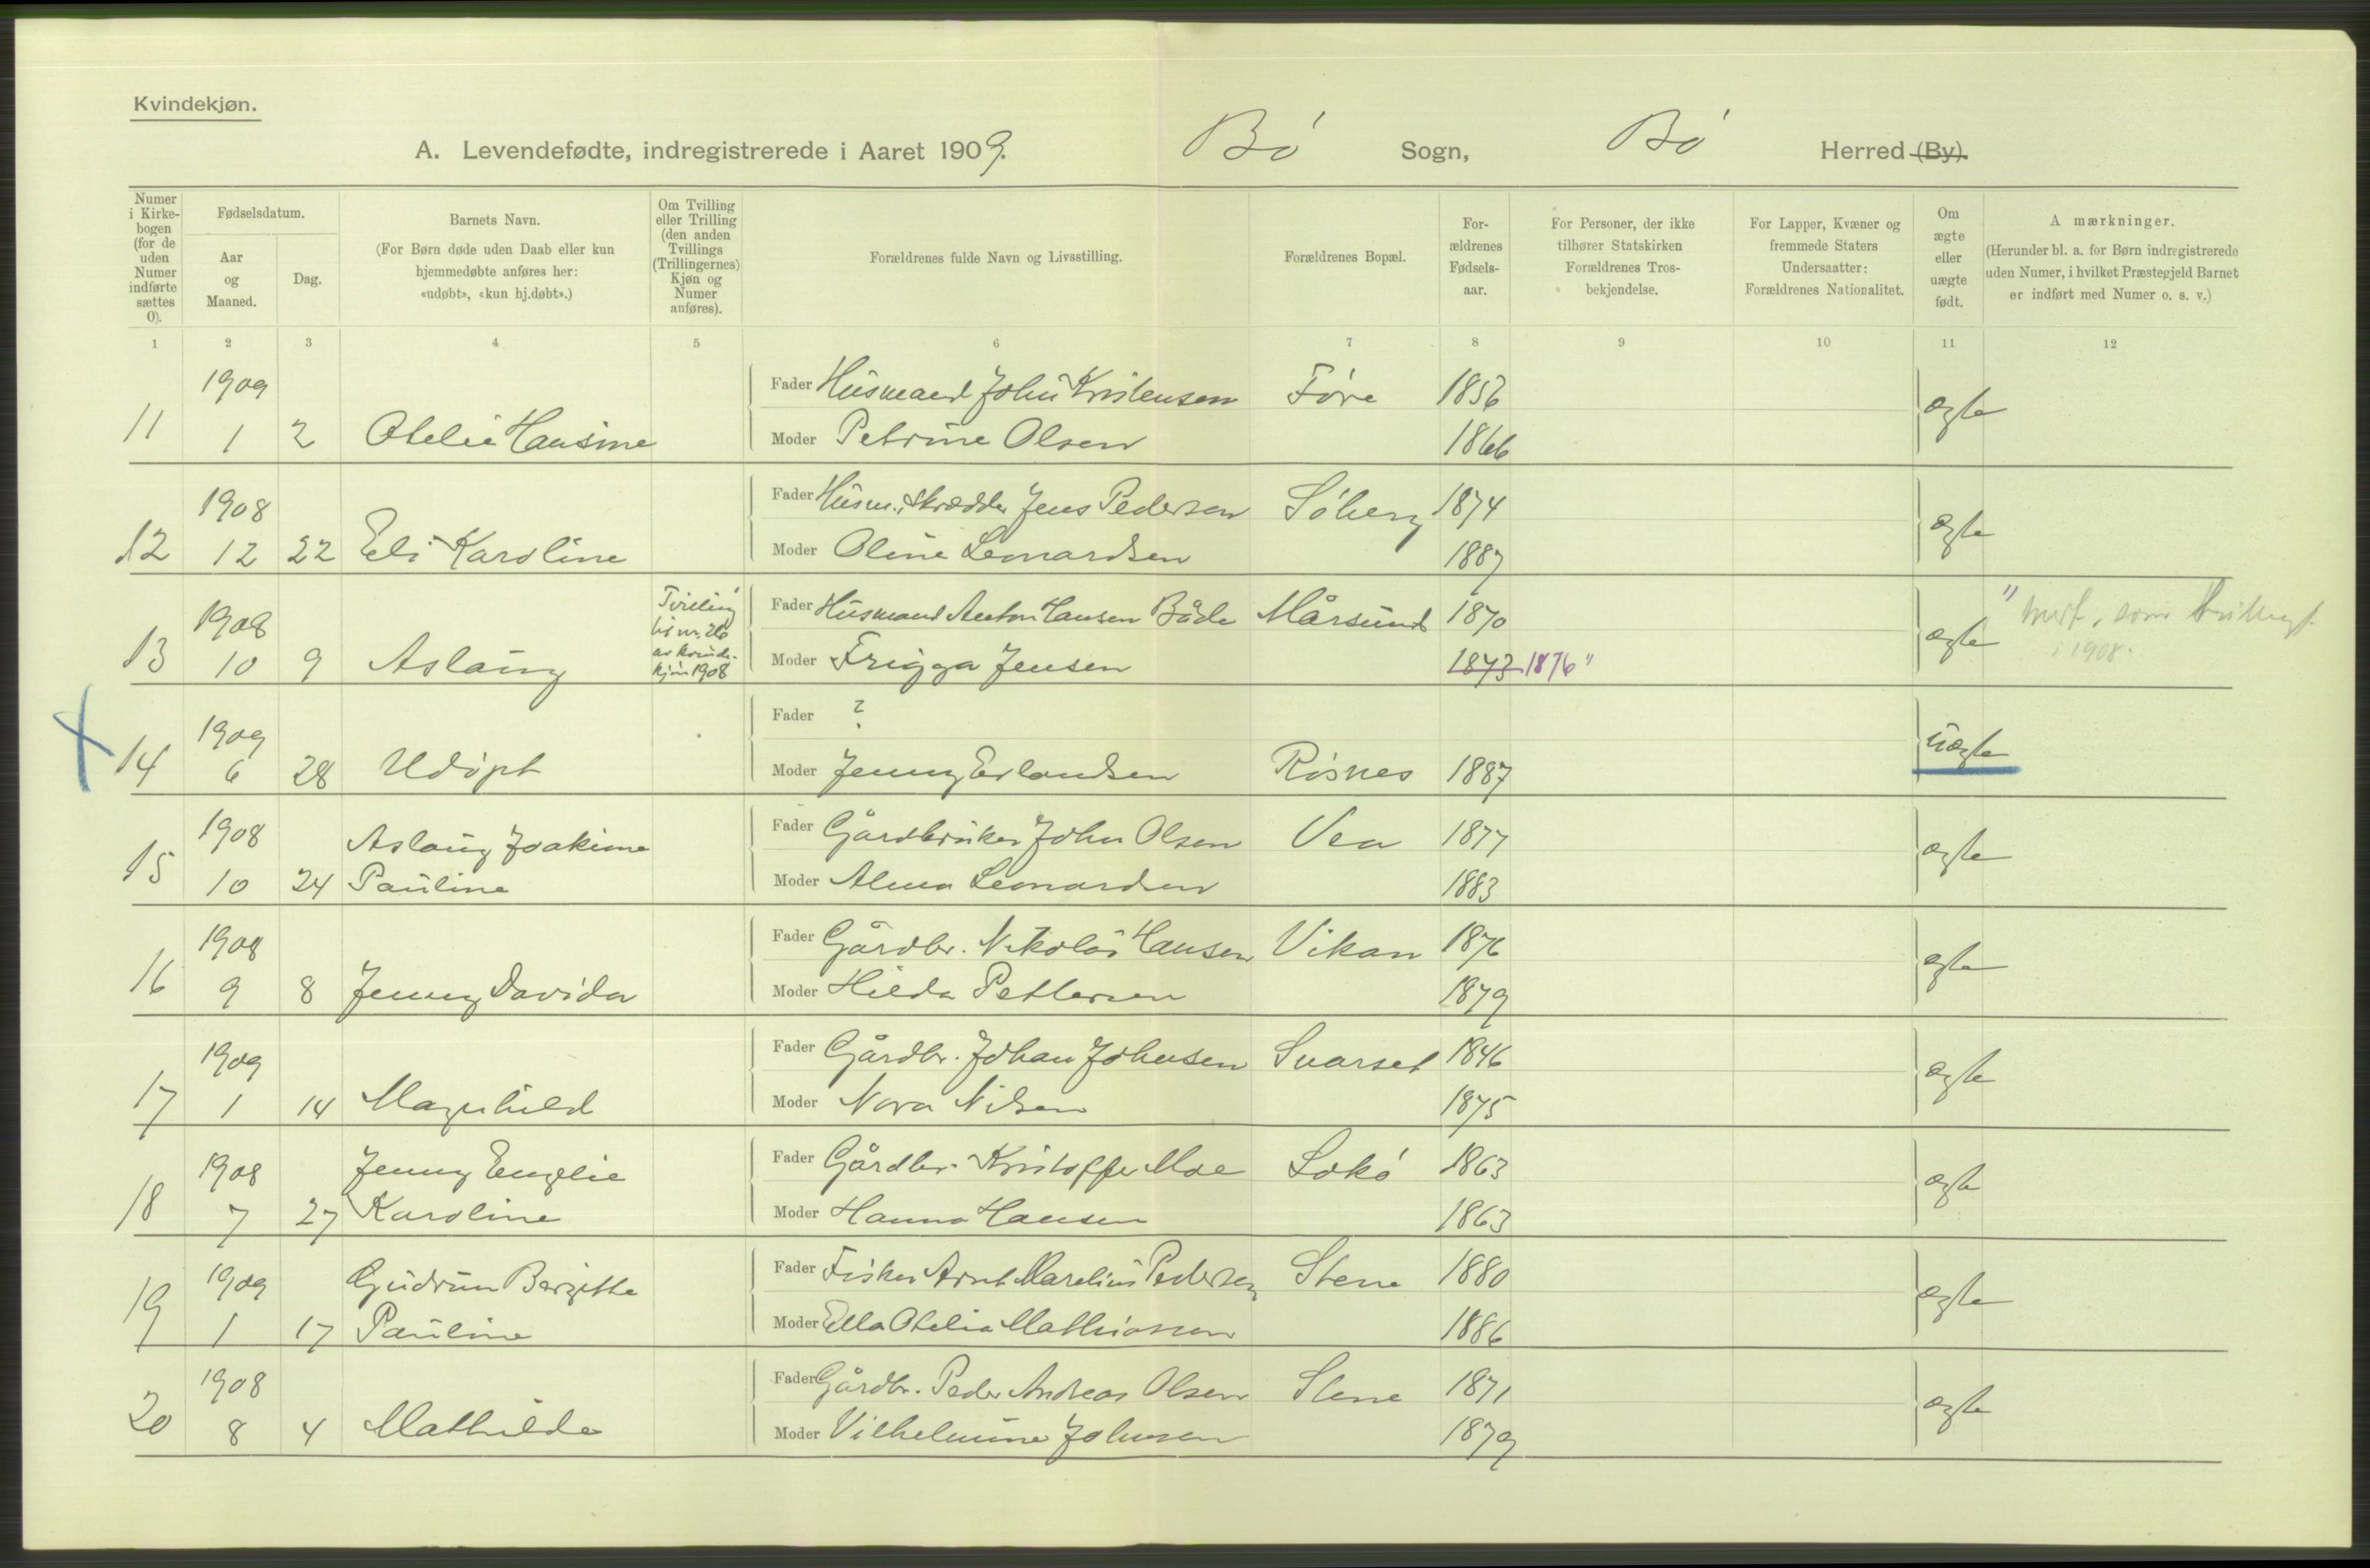 Kvindekjøn.
A. Levendefødte, indregistrerede i Aaret 1909. Bö Sogn, Bö Herred (By).
Numer i Kirkebogen (for de uden Numer indførte sættes 0).
Fødselsdatum.
Aar og Maaned.
Dag.
Barnets Navn.
(For Børn døde uden Daab eller kun hjemmedøbte anføres her: «udøbt», «kun hj.døbt».)
Om Tvilling eller Trilling (den anden Tvillings (Trillingernes) Kjøn og Numer anføres).
Forældrenes fulde Navn og Livsstilling.
Forældrenes Bopæl.
Forældrenes Fødselsaar.
For Personer, der ikke tilhører Statskirken Forældrenes Trosbekjendelse.
For Lapper, Kvæner og fremmede Staters Undersaatter: Forældrenes Nationalitet.
Om ægte eller uægte født.
Anmærkninger.
(Herunder bl. a. for Børn indregistrerede uden Numer, i hvilket Præstegjeld Barnet er indført med Numer o. s. v.)
1 2 3 4 5 6 7 8 9 10 11 12
1909 Fader Husmand John Kristensen Före 1856 ægte
11 1 2 Otelie Hansine Moder Petrine Olsen 1866
1908 Fader Husm., skrædder Jens Pedersen Söberg 1874 ægte
12 12 22 Eli Karoline Moder Oline Leonardsen 1887
1908 Tvilling til nr. 26 av kvindekjön 1908 Fader Husmand Anton Hansen Både Mårsund 1870 ægte
13 10 9 Aslaug Moder Frigga Jensen 1873 1876" i 1908.
1909 Fader ? uægte
14 6 28 Udöpt Moder Jenny Erlandsen Rösnes 1887
1908 Aslaug Joakime Fader Gårdbruker John Olsen Vea 1877 ægte
15 10 24 Pauline Moder Alma Leonardsen 1883
1908 Fader Gårdbr. Nikolai Hansen Vikan 1876 ægte
16 9 8 Jenny Davida Moder Hilda Pettersen 1879
1909 Fader Gårdbr. Johan Johnsen Svarset 1846 ægte
17 1 14 Magnhild Moder Nora Nilsen 1875
1908 Jenny Engelie Fader Gårdbr. Kristoffer Moe Sokö 1863 ægte
18 7 27 Karoline Moder Hanna Hansen 1863
1909 Gudrun Bergitte Fader Fisker Arnt Marelius Pedersen Stene 1880 ægte
19 1 17 Pauline Moder Ella Otelia Mathiassen 1886
1908 Fader Gårdbr. Peder Andreas Olsen Stene 1871 ægte
20 8 4 Mathilde Moder Vilhelmine Johnsen 1879